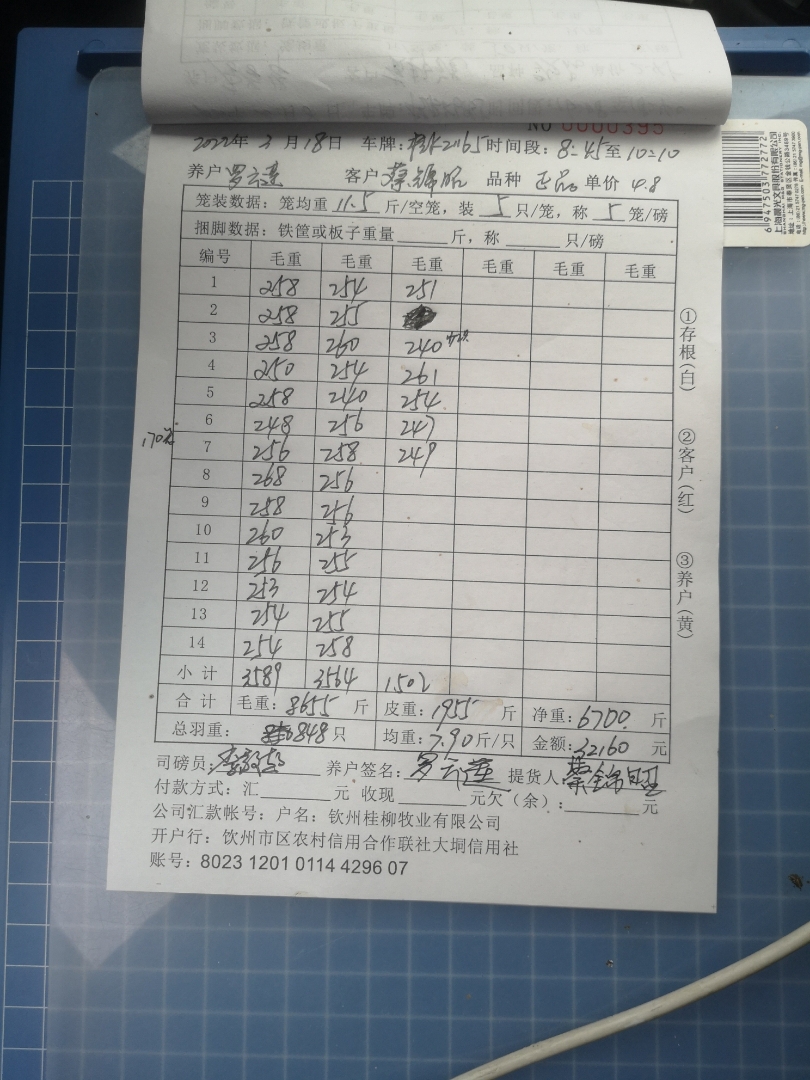 NO 0000395
2022年 3 月 18日 车牌: 2165 时间段: 8:45 至 10:10
养户 罗云莲 客户 蔡锦昭 品种 正品 单价 4.8
笼装数据: 笼均重 11.5 斤/空笼, 装 5 只/笼, 称 5 笼/磅
捆脚数据: 铁筐或板子重量 斤, 称 只/磅
编号 毛重 毛重 毛重 毛重 毛重 毛重
1 258 254 251
2 258 255
3 258 260 240
4 250 254 261
5 258 240 254
6 248 256 247
170元
7 256 258 249
8 268 256
9 258 256
10 260 253
11 256 255
12 253 254
13 254 255
14 254 258
小 计 3589 3564 1502
合 计 毛重: 8655 斤 皮重: 1955 斤 净重: 6700 斤
总羽重: 848 只 均重: 7.90 斤/只 金额: 32160 元
司磅员: 养户签名: 罗云莲 提货人: 蔡锦昭
付款方式: 汇 元 收现 元欠(余): 元
公司汇款帐号: 户名: 钦州桂柳牧业有限公司
开户行: 钦州市区农村信用合作联社大垌信用社
账号: 8023 1201 0114 4296 07
①存根(白)
②客户(红)
③养户(黄)
6947503772772
上海晨光文具股份有限公司